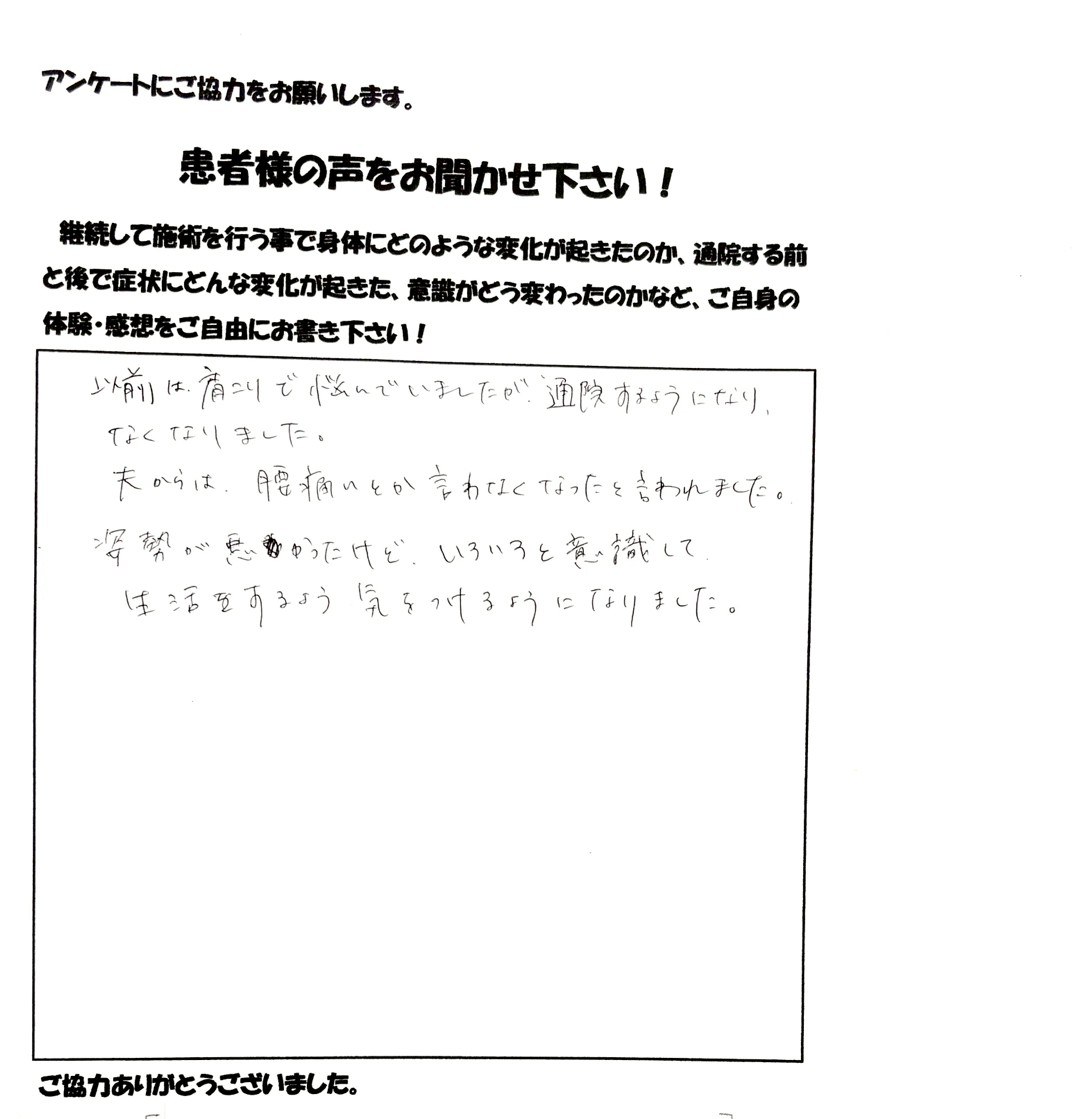 アンケートにご協力をお願いします。
患者様の声をお聞かせ下さい！
継続して施術を行う事で身体にどのような変化が起きたのか、通院する前
と後で症状にどんな変化が起きた、意識がどう変わったのかなど、ご自身の
体験・感想をご自由にお書き下さい！
以前は、肩こりで悩んでいましたが、通院するようになり、
なくなりました。
夫からは、腰痛いとか言わなくなったと言われました。
姿勢が悪かったけど、いろいろと意識して、
生活をするよう気をつけるようになりました。
ご協力ありがとうございました。